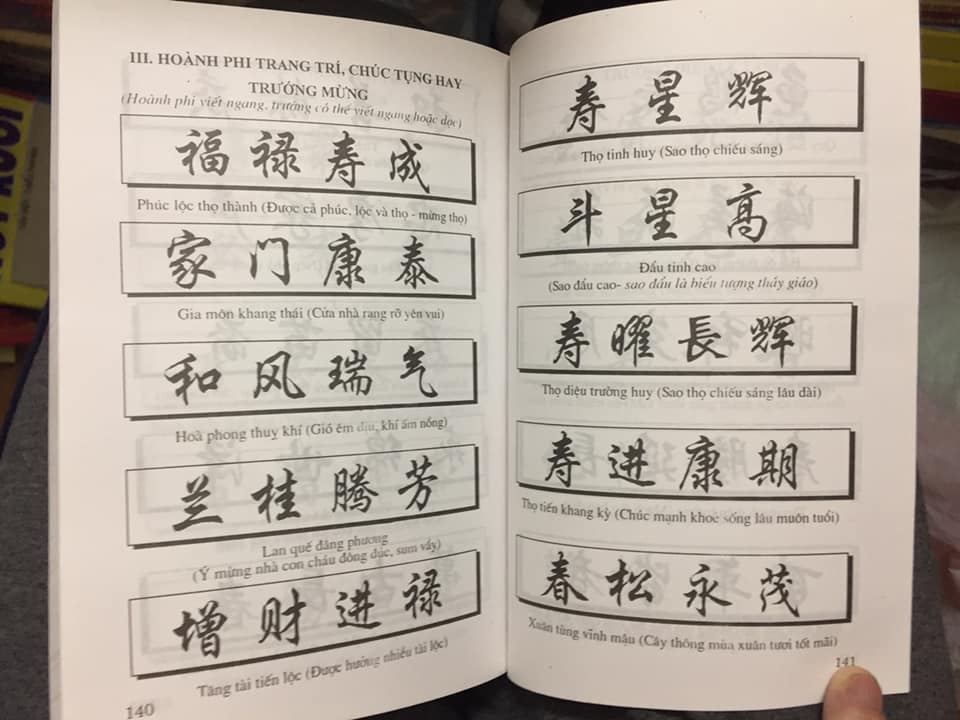 III. HOÀNH PHI TRANG TRÍ, CHÚC TỤNG HAY
TRƯỚNG MỪNG
(Hoành phi viết ngang, trướng có thể viết ngang hoặc dọc)
福禄寿成
Phúc lộc thọ thành (Được cả phúc, lộc và thọ - mừng thọ)
家门康泰
Gia môn khang thái (Cửa nhà rạng rỡ yên vui)
和风瑞气
Hoà phong thuỵ khí (Gió êm dịu, khí ấm nồng)
兰桂腾芳
Lan quế đăng phương
(Ý mừng nhà con cháu đông đúc, sum vầy)
增财进禄
Tăng tài tiến lộc (Được hưởng nhiều tài lộc)
140
寿星辉
Thọ tinh huy (Sao thọ chiếu sáng)
斗星高
Đẩu tinh cao
(Sao đẩu cao- sao đẩu là biểu tượng thầy giáo)
寿曜長辉
Thọ diệu trường huy (Sao thọ chiếu sáng lâu dài)
寿进康期
Thọ tiến khang kỳ (Chúc mạnh khoẻ sống lâu muôn tuổi)
春松永茂
Xuân tùng vĩnh mậu (Cây thông mùa xuân tươi tốt mãi)
141